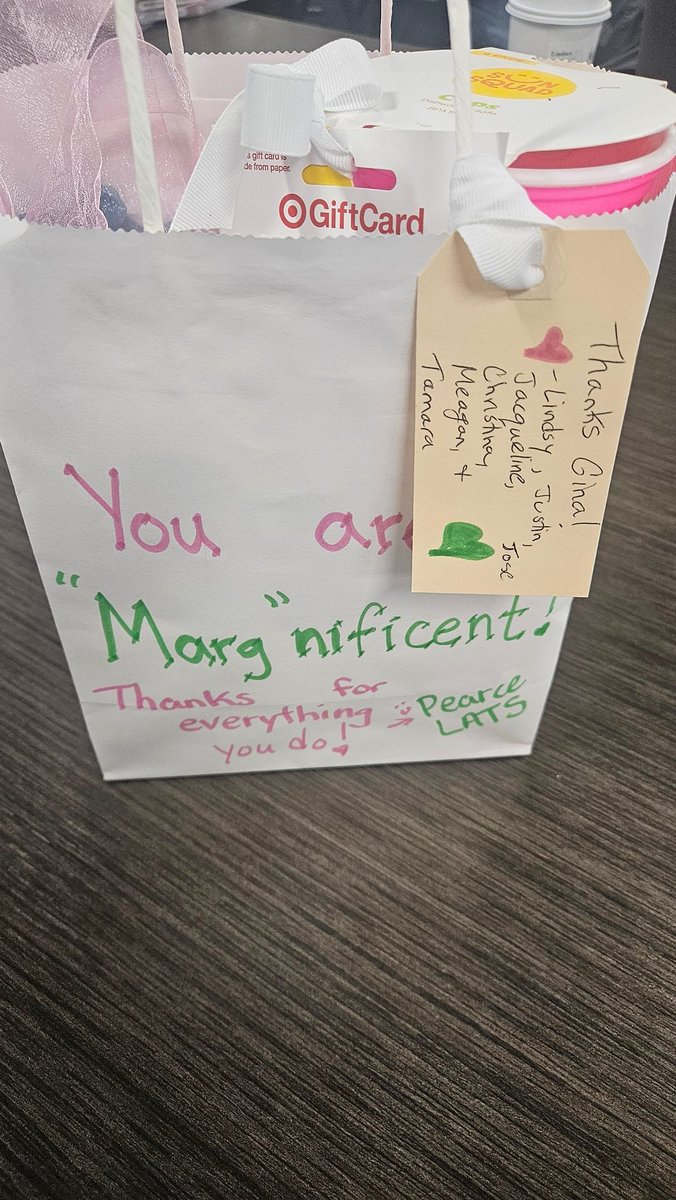 SUN
SQUAD
Cups
s gift card is
de from paper.
GiftCard
Thanks Gina!
- Lindsy, Justin,
Jacqueline, Jose
Christina,
Meagan, +
Tamara
You are
"Marg"nificent!
Thanks for
everything
you do!
Pearce
LATS